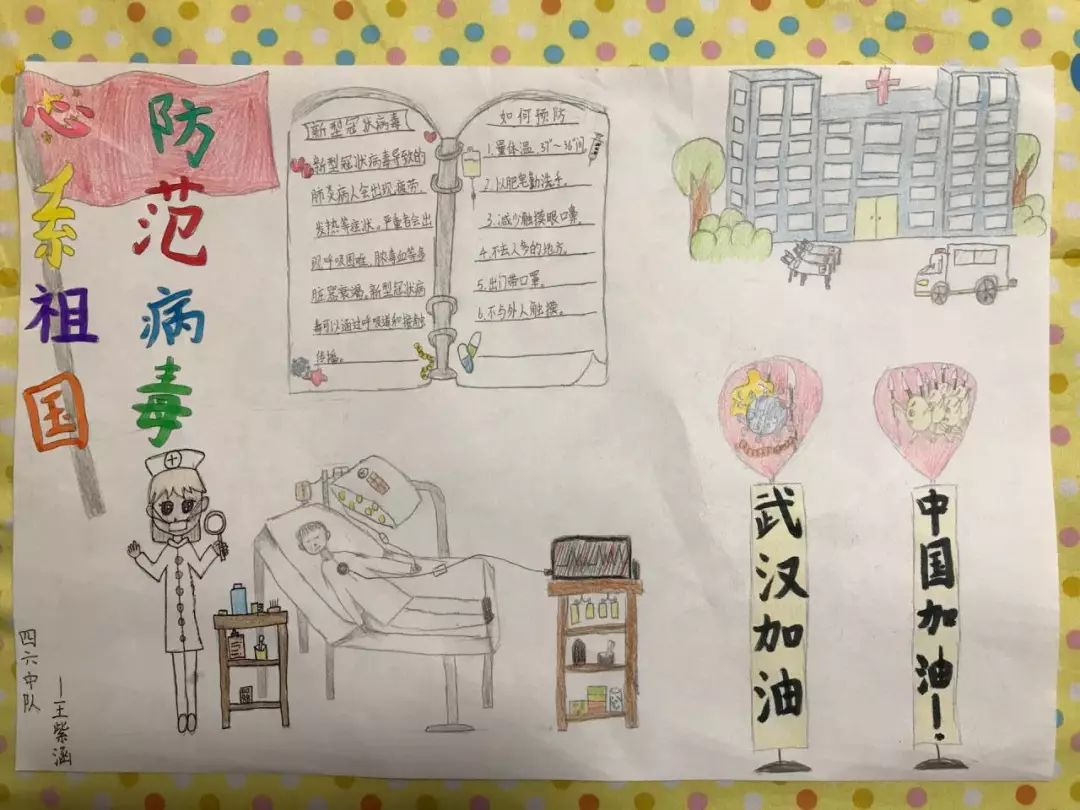 心系祖国
防范病毒
新型冠状病毒
新型冠状病毒导致的
肺炎病人会出现疲劳,
发热等症状,严重者会出
现呼吸困难、脓毒血等多
脏器衰竭。新型冠状病
毒可以通过呼吸道和接触
传播。
如何预防
1.量体温,37°~36°间
2.以肥皂勤洗手。
3.减少触摸眼口鼻。
4.不去人多的地方。
5.出门带口罩。
6.不与外人触摸。
武汉加油
中国加油!
四六中队
—王紫涵